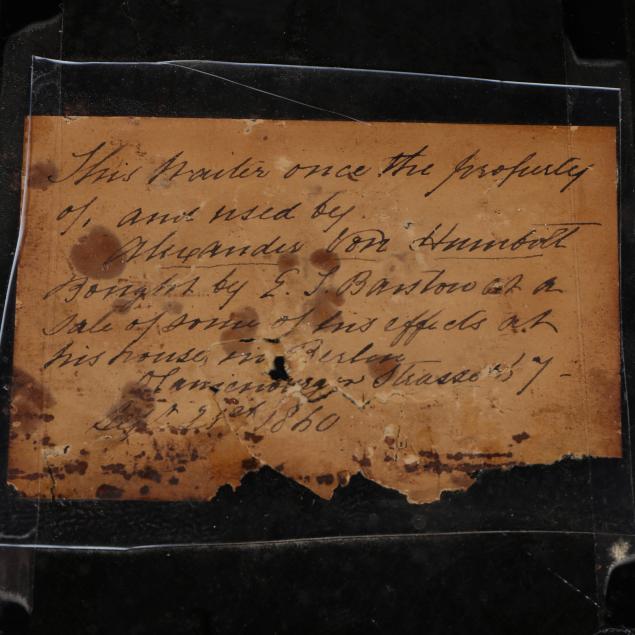 This Waiter once the property
of, and used by
Alexander Von Humbolt
Bought by E. S Barstow at a
Sale of some of his effects at
his house in Berlin
Strasse 67 -
Sept 1860